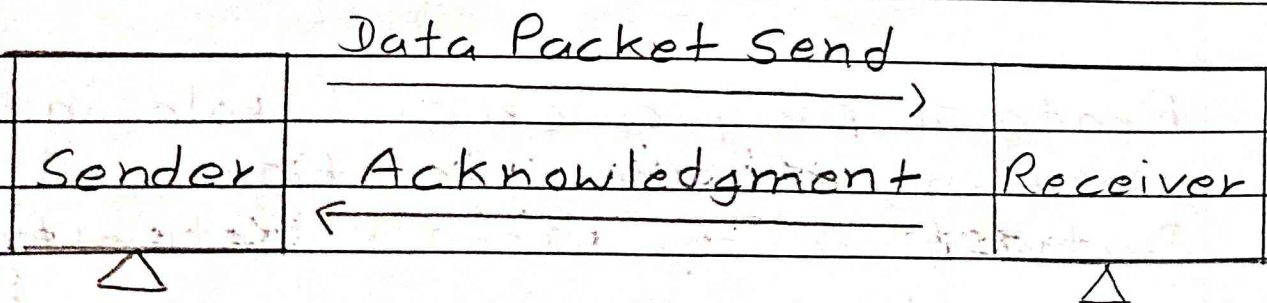 Data Packet Send
Sender Acknowledgment Receiver